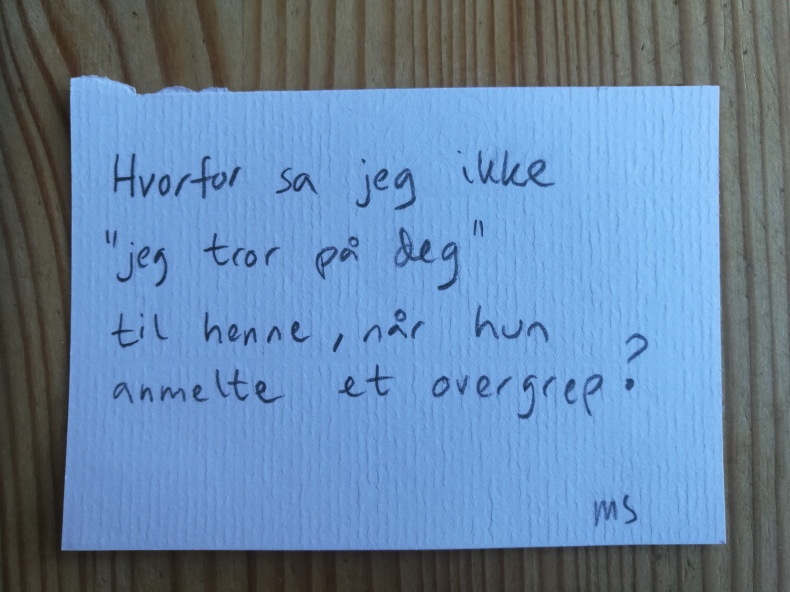 Hvorfor sa jeg ikke
"jeg tror på deg"
til henne, når hun
anmelte et overgrep?
ms